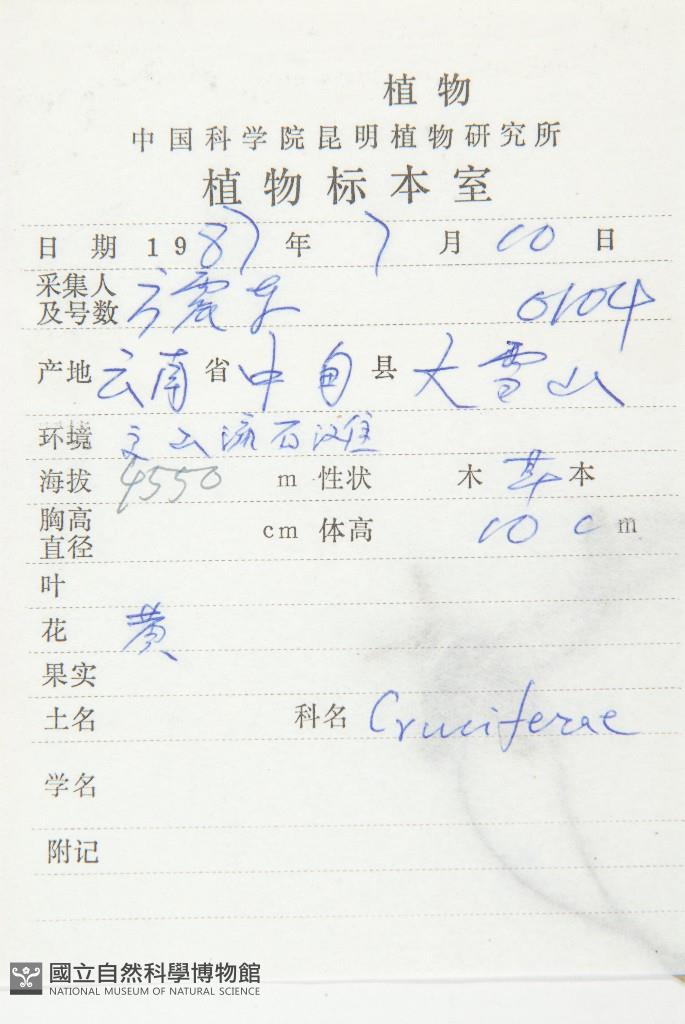 植物
中国科学院昆明植物研究所
植物标本室
日 期 1987年 7 月 10 日
采集人
及号数 方震东 0104
产地 云南省 中甸 县 大雪山
环境 高山流石滩
海拔 4550 m 性状 木 草本
胸高
直径 cm 体高 10 cm
叶
花 黄
果实
土名 科名 Cruciferae
学名
附记
國立自然科學博物館
NATIONAL MUSEUM OF NATURAL SCIENCE